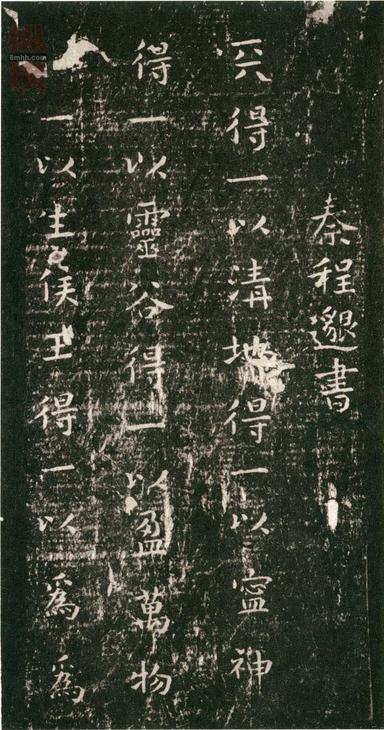 秦程邈書
天得一以清地得一以寍神
得一以靈谷得一以盈萬物
一以生侯王得一以為為
8mhh.com